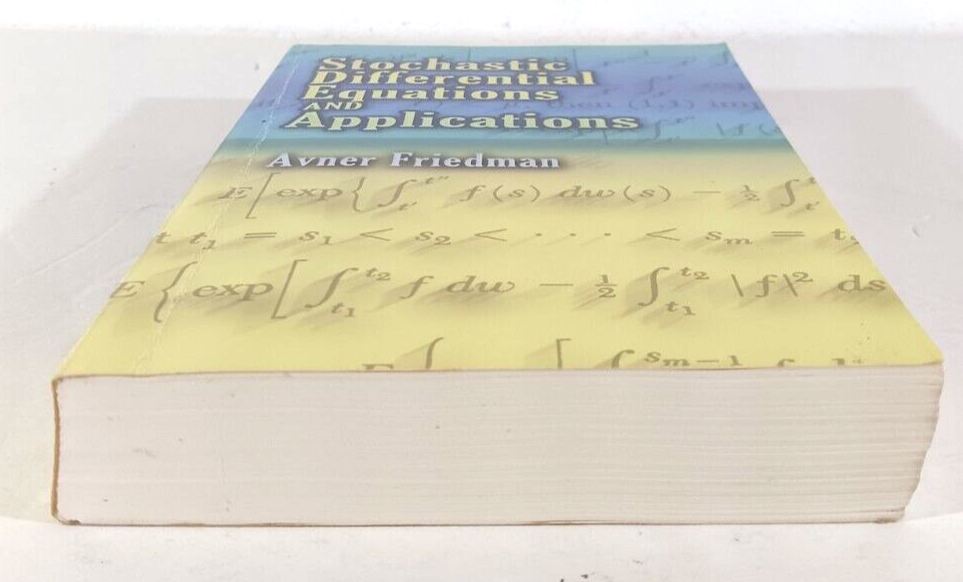 Stochastic
Differential
Equations
AND
Applications
Avner Friedman
E[exp{∫_{t'}^{t''} f(s) dw(s) − ½ ∫_{t'}
t t₁ = s₁ < s₂ < · · · < sₘ = t₂
E{exp[∫_{t₁}^{t₂} f dw − ½ ∫_{t₁}^{t₂} |f|² ds